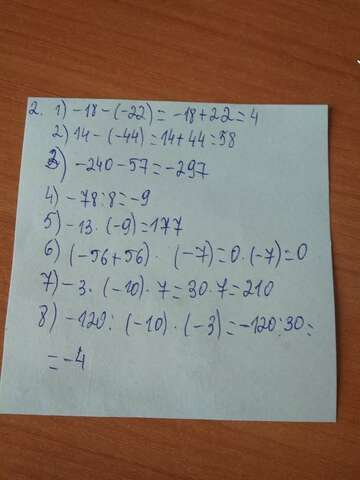 2. 1) -18-(-22)=-18+22=4
2) 14-(-44)=14+44=58
3) -240-57=-297
4) -78:8=-9
5) -13·(-9)=177
6) (-56+56)·(-7)=0·(-7)=0
7) -3·(-10)·7=30·7=210
8) -120:(-10)·(-3)=-120:30=
=-4